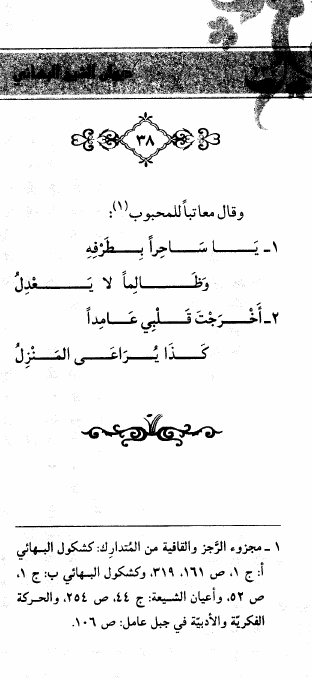 ديوان الشيخ البهائي
٣٨
وقال معاتباً للمحبوب(١):
١ـ يَـــا سَــاحِراً بِـــطَرْفِهِ
وَظَـــالِماً لا يَـــعْدِلُ
٢ـ أَخْـــرَجْتَ قَـــلْبِي عَـــامِداً
كَـــذَا يُـــرَاعَـــى المَـــنْزِلُ
١ ـ مجزوء الرَّجز والقافية من المُتدارك: كشكول البهائي
أ: ج ١، ص ١٦١، ٣١٩، وكشكول البهائي ب: ج ١،
ص ٥٢، وأعيان الشيعة: ج ٤٤، ص ٢٥٤، والحركة
الفكريّة والأدبيّة في جبل عامل: ص ١٠٦.